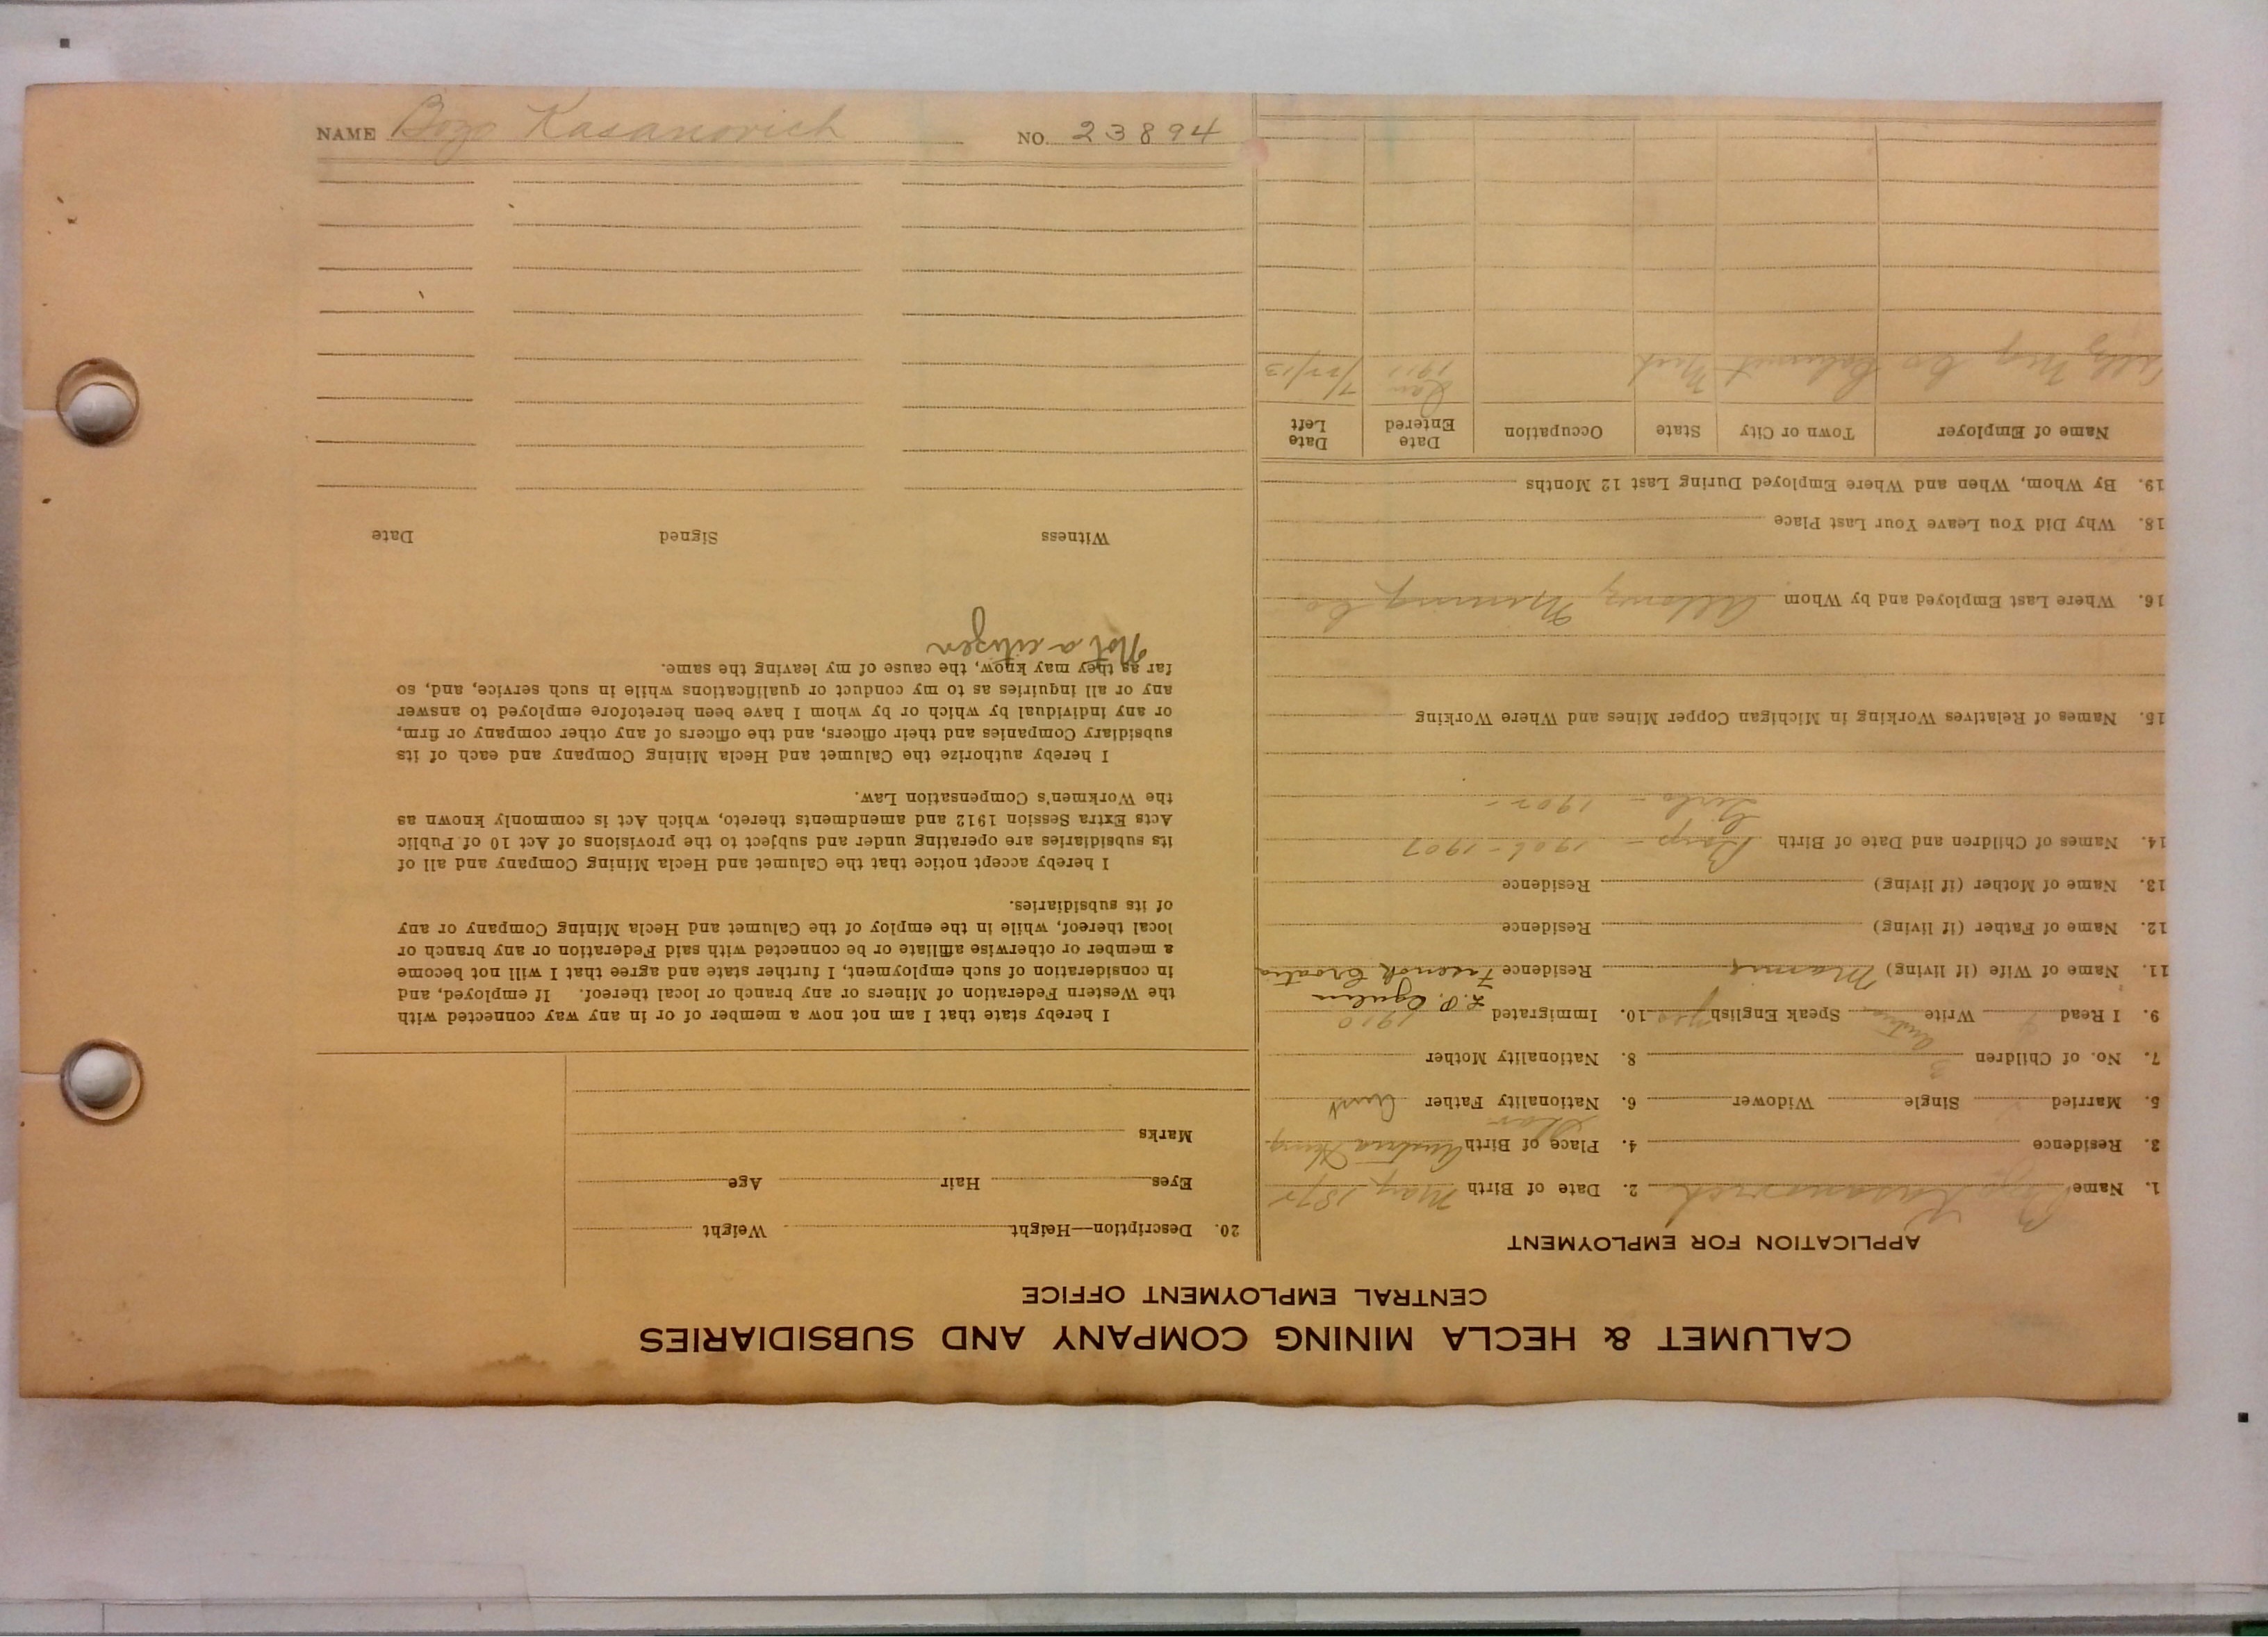 NAME Bozo Kasanovich NO. 23894
CALUMET & HECLA MINING COMPANY AND SUBSIDIARIES
CENTRAL EMPLOYMENT OFFICE
APPLICATION FOR EMPLOYMENT
1. Name Bozo Kasanovich 2. Date of Birth May 1875
3. Residence 4. Place of Birth Austria Hung
5. Married Single Widower 6. Nationality Father Aust
7. No. of Children 3 8. Nationality Mother
9. I Read Write Speak English yes 10. Immigrated 1910
11. Name of Wife (if living) Residence Croatia
12. Name of Father (if living) Residence
13. Name of Mother (if living) Residence
14. Names of Children and Date of Birth Boys - 1906-1907
Girls - 1902 -
15. Names of Relatives Working in Michigan Copper Mines and Where Working
16. Where Last Employed and by Whom Allouez Mining Co
18. Why Did You Leave Your Last Place
19. By Whom, When and Where Employed During Last 12 Months
Name of Employer Town or City State Occupation Date Entered Date Left
Allz Mng Co Calumet Mich Jan 1911 7/22/13
20. Description—Height Weight
Eyes Hair Age
Marks
I hereby state that I am not now a member of or in any way connected with
the Western Federation of Miners or any branch or local thereof. If employed, and
in consideration of such employment, I further state and agree that I will not become
a member or otherwise affiliate or be connected with said Federation or any branch or
local thereof, while in the employ of the Calumet and Hecla Mining Company or any
of its subsidiaries.
I hereby accept notice that the Calumet and Hecla Mining Company and all of
its subsidiaries are operating under and subject to the provisions of Act 10 of Public
Acts Extra Session 1912 and amendments thereto, which Act is commonly known as
the Workmen's Compensation Law.
I hereby authorize the Calumet and Hecla Mining Company and each of its
subsidiary Companies and their officers, and the officers of any other company or firm,
or any individual by which or by whom I have been heretofore employed to answer
any or all inquiries as to my conduct or qualifications while in such service, and, so
far as they may know, the cause of my leaving the same.
Not a citizen
Witness Signed Date